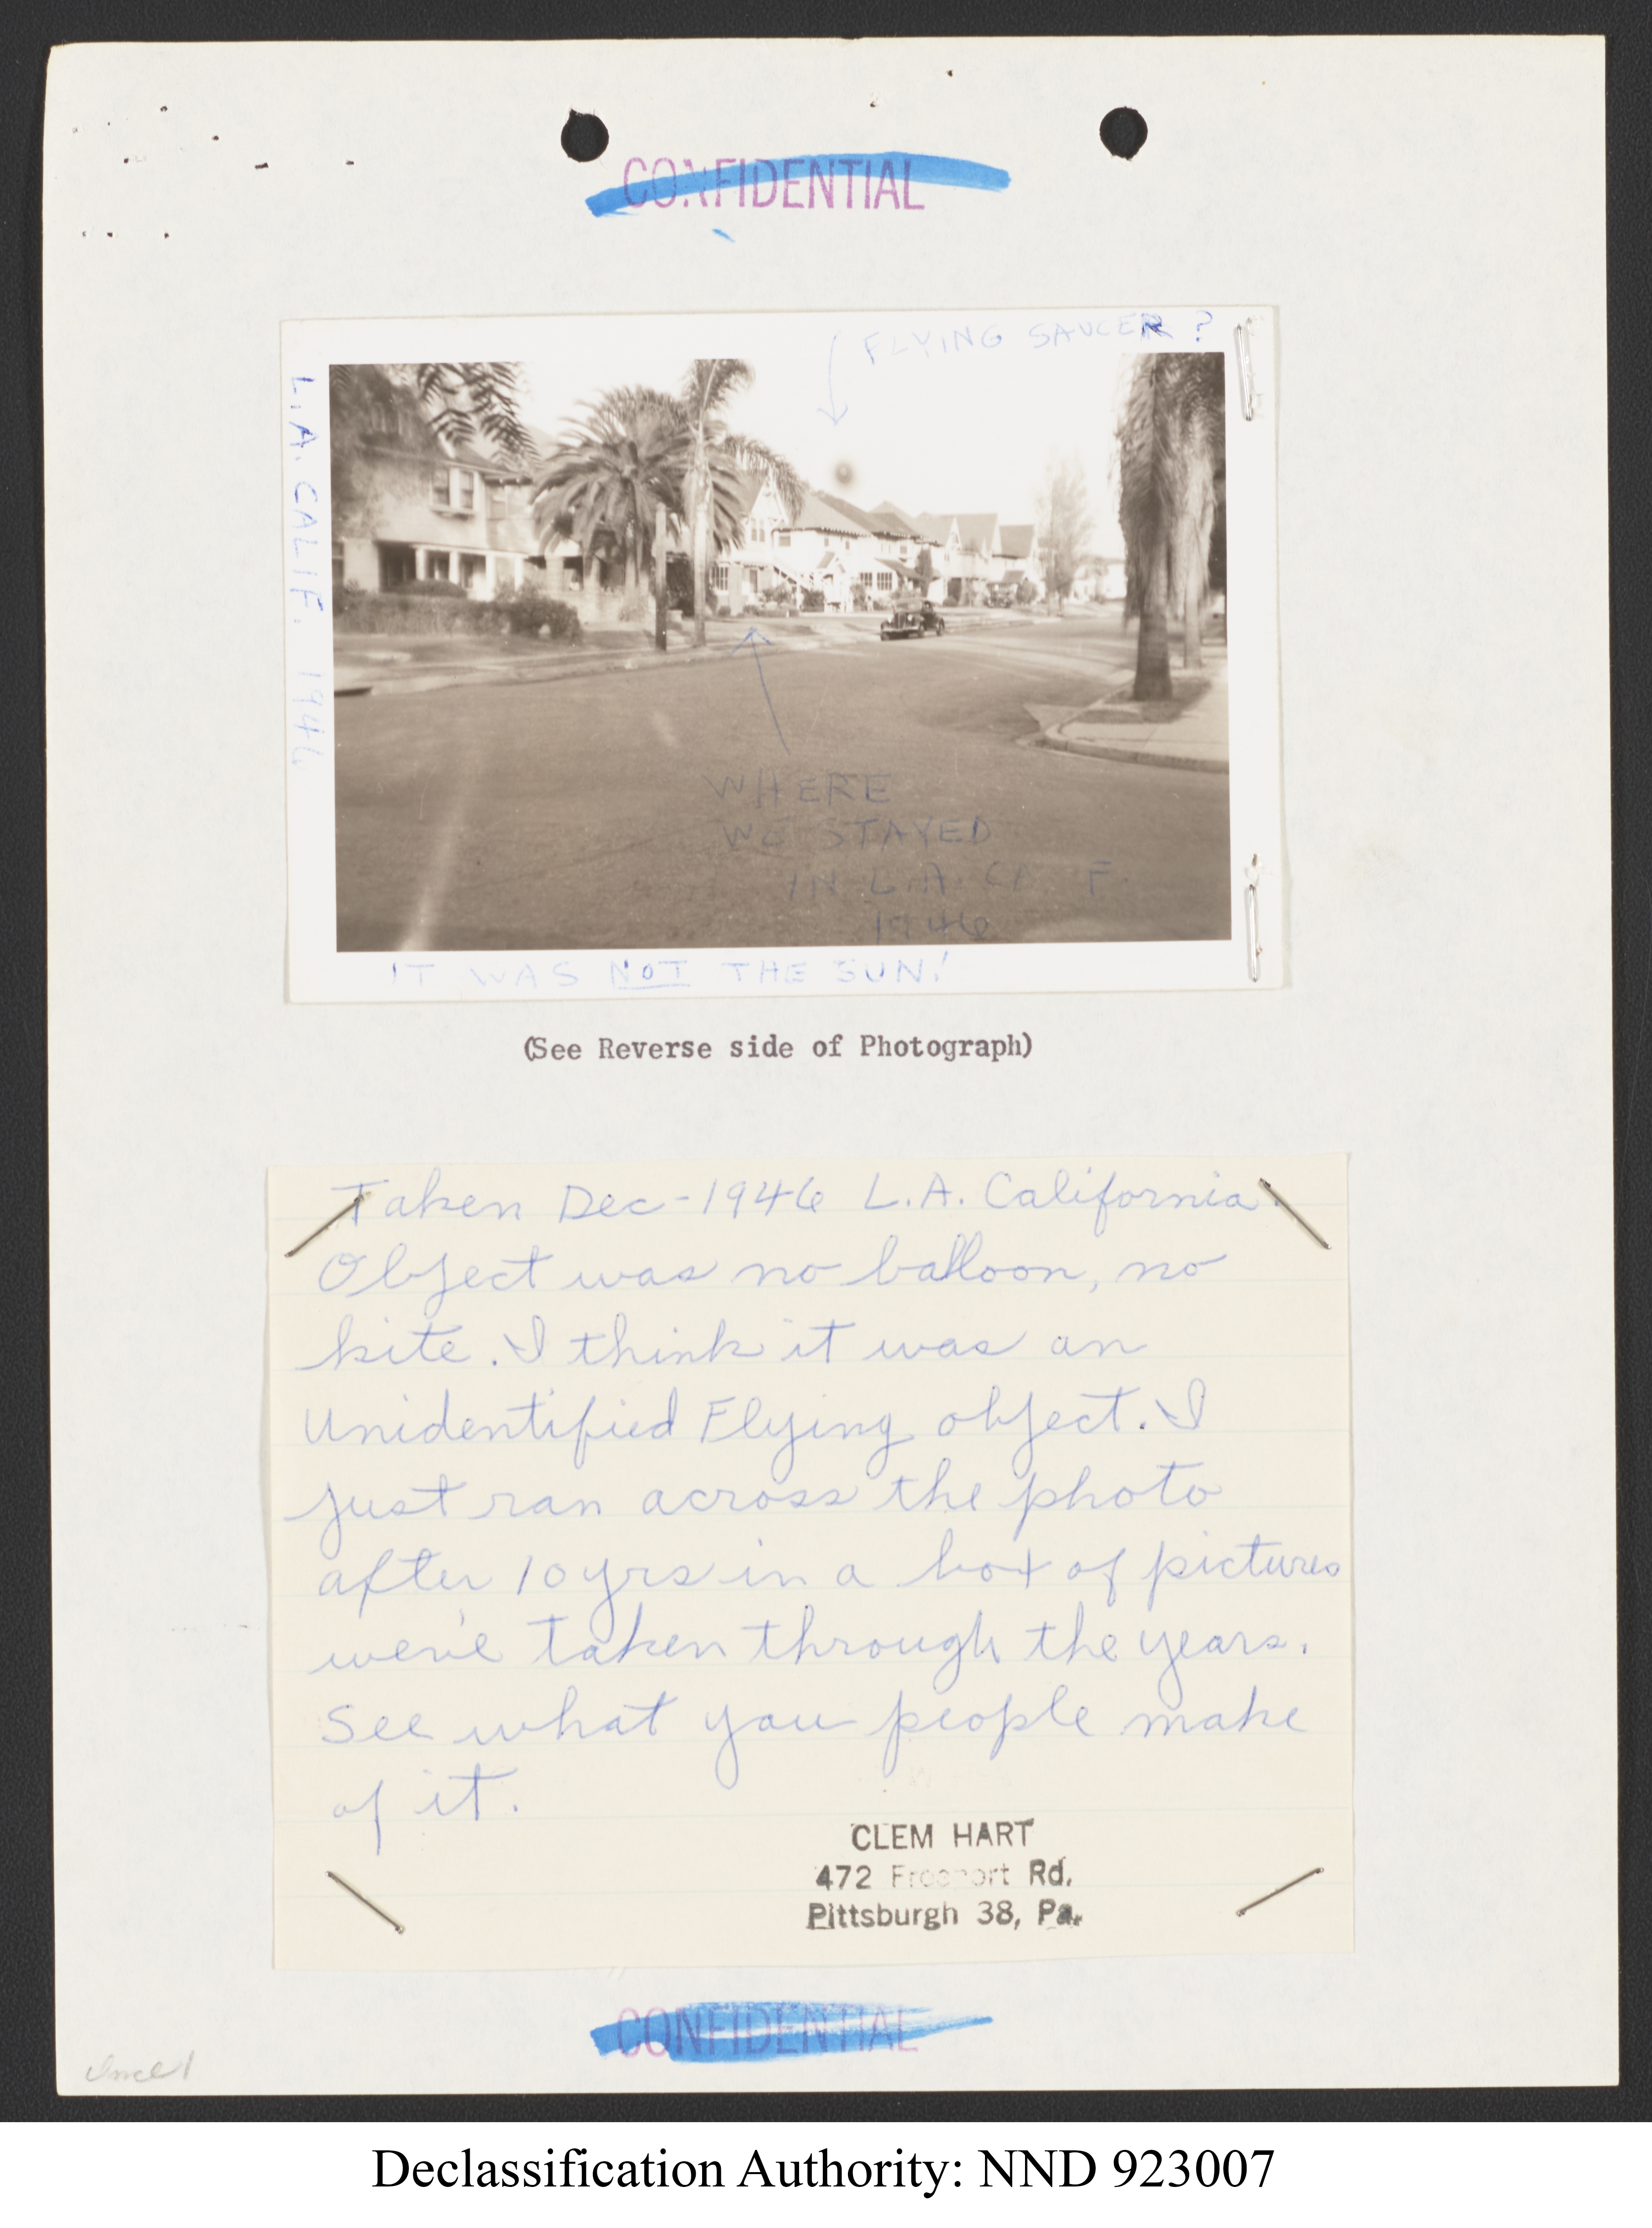 CONFIDENTIAL
FLYING SAUCER ?
L.A. CALIF. 1946
WHERE
WE STAYED
IN L.A. CA F.
1946
IT WAS NOT THE SUN!
(See Reverse side of Photograph)
Taken Dec-1946 L.A. California.
Object was no balloon, no
kite. I think it was an
Unidentified Flying object. I
just ran across the photo
after 10 yrs in a box of pictures
we've taken through the years.
See what you people make
of it.
CLEM HART
472 Rd.
Pittsburgh 38, Pa.
CONFIDENTIAL
Incl 1
Declassification Authority: NND 923007